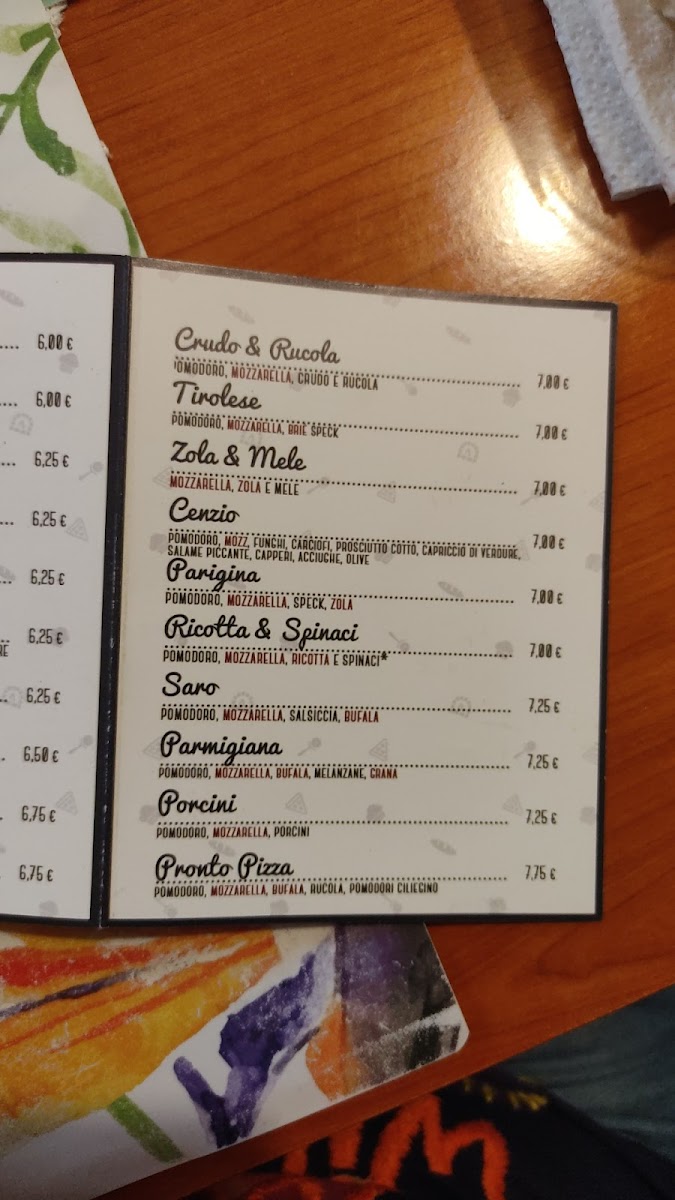 6,00 €
6,00 €
6,25 €
6,25 €
6,25 €
6,25 €
RE
6,25 €
6,50 €
6,75 €
6,75 €
Crudo & Rucola
7,00 €
POMODORO, MOZZARELLA, CRUDO E RUCOLA
Tirolese
7,00 €
POMODORO, MOZZARELLA, BRIE SPECK
Zola & Mele
7,00 €
MOZZARELLA, ZOLA E MELE
Cenzio
7,00 €
POMODORO, MOZZ, FUNGHI, CARCIOFI, PROSCIUTTO COTTO, CAPRICCIO DI VERDURE,
SALAME PICCANTE, CAPPERI, ACCIUGHE, OLIVE
Parigina
7,00 €
POMODORO, MOZZARELLA, SPECK, ZOLA
Ricotta & Spinaci
7,00 €
POMODORO, MOZZARELLA, RICOTTA E SPINACI*
Saro
7,25 €
POMODORO, MOZZARELLA, SALSICCIA, BUFALA
Parmigiana
7,25 €
POMODORO, MOZZARELLA, BUFALA, MELANZANE, GRANA
Porcini
7,25 €
POMODORO, MOZZARELLA, PORCINI
Pronto Pizza
7,75 €
POMODORO, MOZZARELLA, BUFALA, RUCOLA, POMODORI CILIEGINO